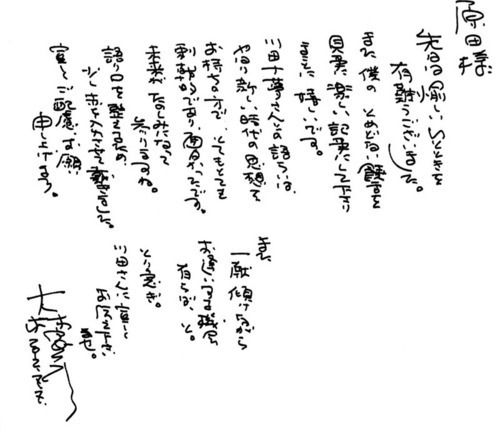 原田様
先日は愉しいひとときを
有難うございました。
また僕の とめどない 饒舌を
見事に楽しい記事にして下り
まことに 嬉しいです。
川田十夢さんとの語らいは、
やはり新しい時代の思想を
お持ちの方で、とてもとても
刺激的であり 面白かったです。
未来が たのしみに なって
参りますね。
語り口を整えるため
少し赤を入れさせて戴きました。
宜しくご配慮お願い
申し上げます。
また
一献 傾けながら
お逢いする機会
有らば、と。
とり急ぎ。
川田さんに宜しく
お伝え下さいませ。
大